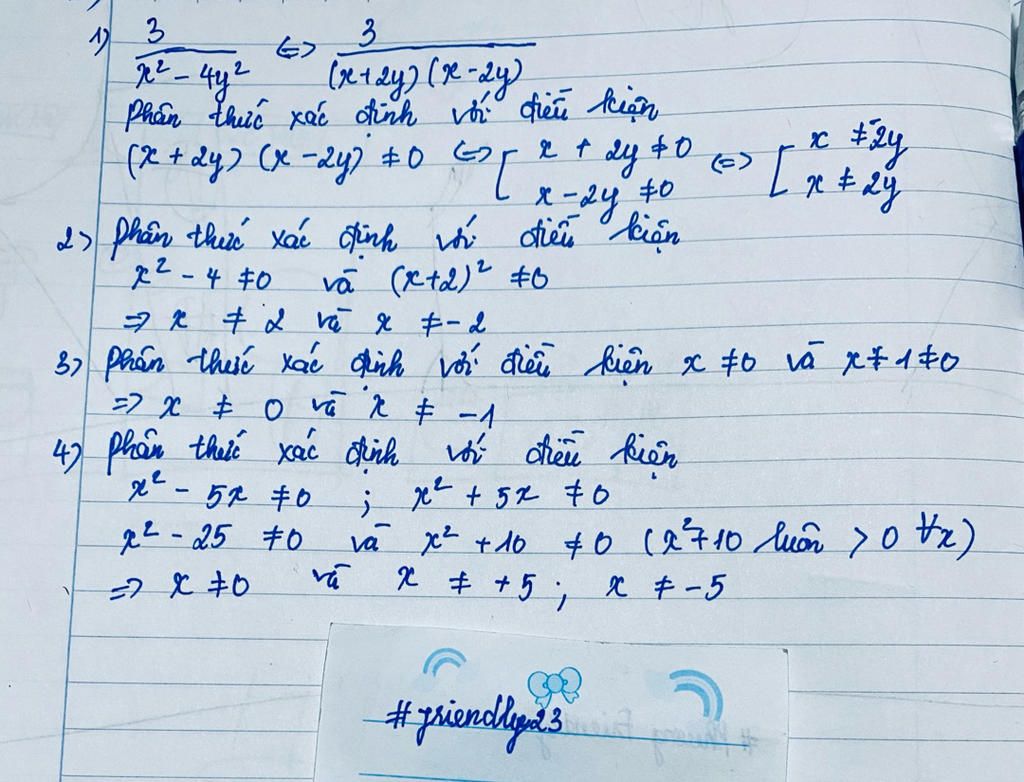 1) 3/(x² - 4y²) <=> 3/((x+2y)(x-2y))
Phân thức xác định với điều kiện
(x + 2y) (x - 2y) ≠ 0 <=> [ x + 2y ≠ 0 <=> [ x ≠ -2y
x - 2y ≠ 0 x ≠ 2y
2) Phân thức xác định với điều kiện
x² - 4 ≠ 0 và (x+2)² ≠ 0
=> x ≠ 2 và x ≠ -2
3) Phân thức xác định với điều kiện x ≠ 0 và x + 1 ≠ 0
=> x ≠ 0 và x ≠ -1
4) Phân thức xác định với điều kiện
x² - 5x ≠ 0 ; x² + 5x ≠ 0
x² - 25 ≠ 0 và x² + 10 ≠ 0 (x² + 10 luôn > 0 ∀x)
=> x ≠ 0 và x ≠ +5 ; x ≠ -5